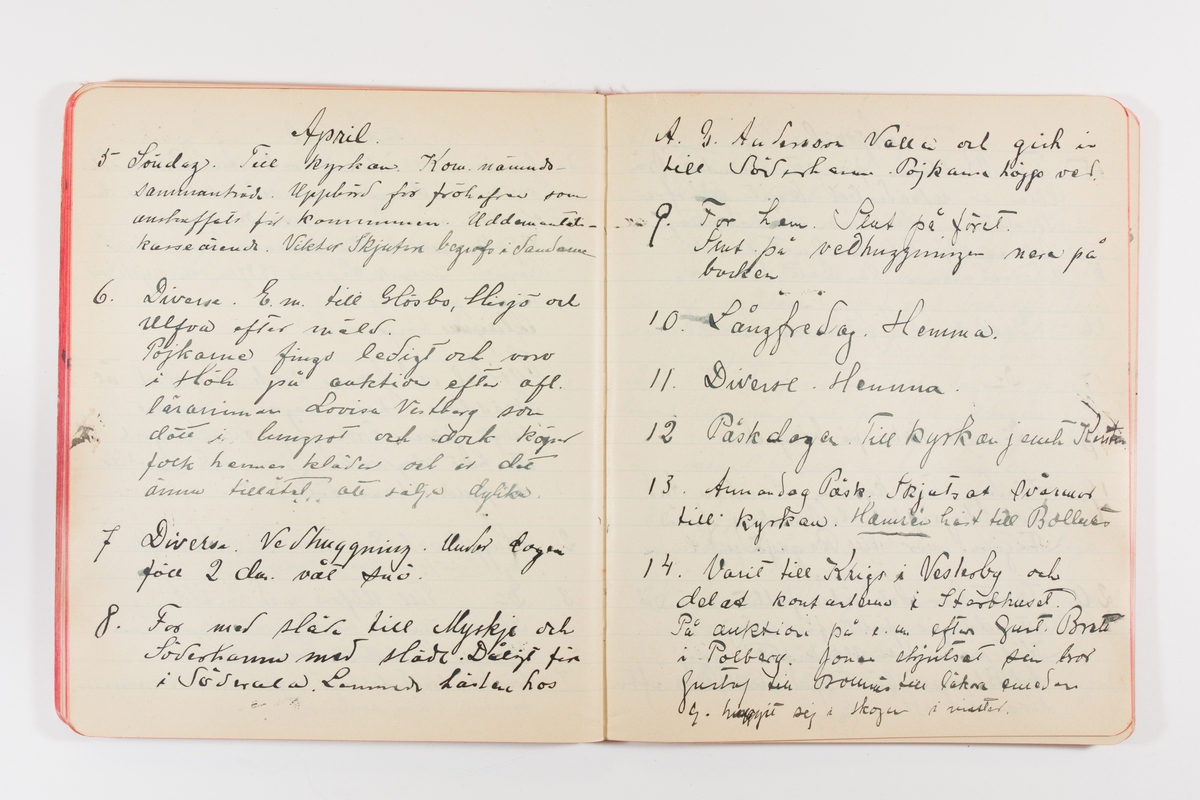 April.
5 Söndag. Till kyrkan. Kom. nämnds-
sammanträde. Uppbörd för fröhafren som
anskaffats för kommunen.
kasseärende. Viktor begrofs i
6. Diverse. E. m. till Glösbo, och
Ulfva efter mäld.
Pojkarne fingo ledigt och voro
i Höle på auktion efter afl.
lärarinnan Lovisa Vestberg som
dött i lungsot och dock köper
folk hennes kläder och är det
ännu tillåtet att sälja dylika.
7 Diverse. Vedhuggning. Under dagen
föll 2 dm. våt snö.
8. For med släde till Myskje och
Söderhamn med släde. Dåligt före
i Söderala. Lemnade hästen hos
A. G. Andersson Valla och gick in
till Söderhamn. Pojkarne höggo ved.
9. For hem. Slut på föret.
Slut på vedhuggningen nere på
backen
10. Långfredag. Hemma.
11. Diverse. Hemma.
12 Påskdagen. Till kyrkan jemte Kerstin
13. Annandag Påsk. Skjutsat svärmor
till kyrkan. häst till Bollnäs
14. Varit till Krigs i Vesterby och
delat i Stärbhuset.
På auktion på e. m. efter Gust. Bratt
i Polberg. Jonas skjutsat sin bror
Gustaf till Bollnäs till läkare emedan
G. huggit sig i skogen i